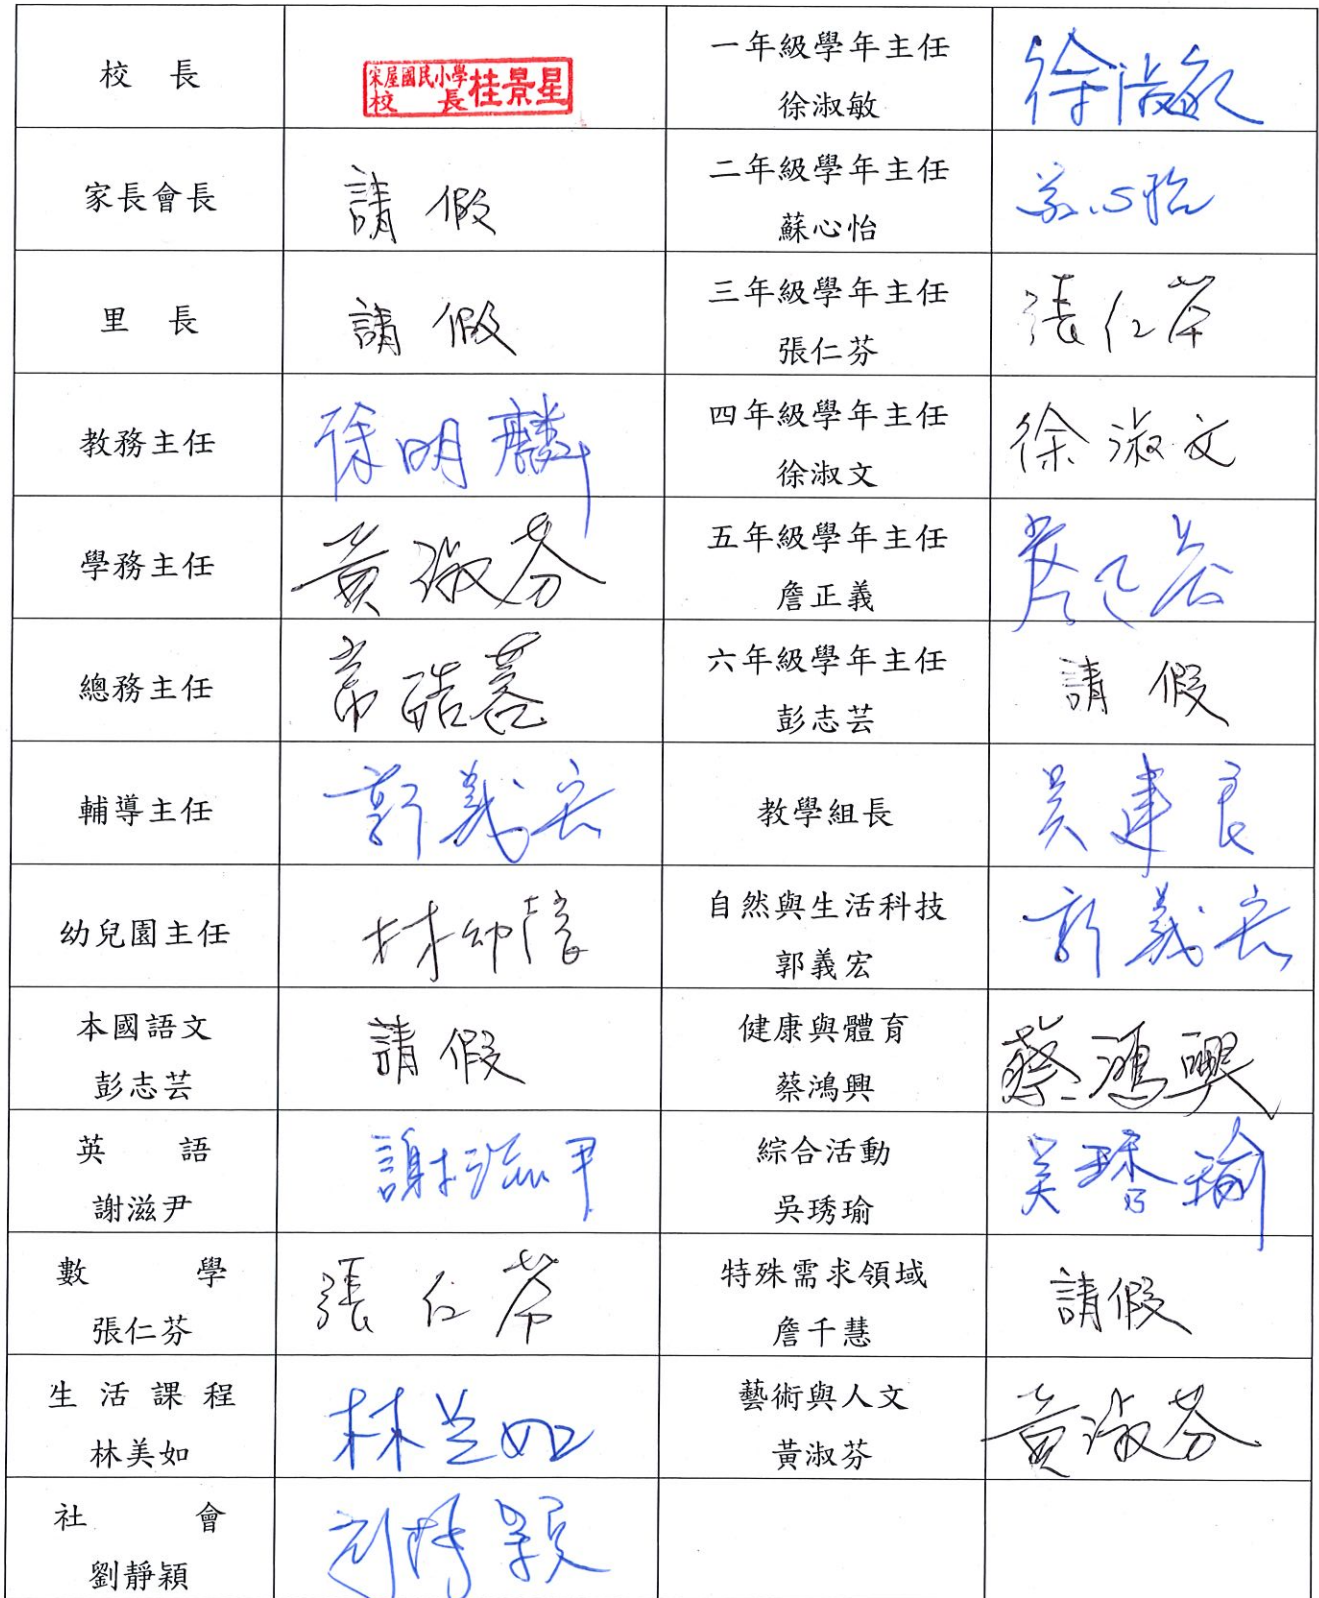 校長
宋屋國民小學
校長桂景星
一年級學年主任
徐淑敏
徐淑敏
家長會長
請假
二年級學年主任
蘇心怡
心怡
里長
請假
三年級學年主任
張仁芬
張仁芬
教務主任
徐明麟
四年級學年主任
徐淑文
徐淑文
學務主任
黃淑芬
五年級學年主任
詹正義
總務主任
六年級學年主任
彭志芸
請假
輔導主任
郭義宏
教學組長
吳建良
幼兒園主任
林幼
自然與生活科技
郭義宏
郭義宏
本國語文
彭志芸
請假
健康與體育
蔡鴻興
蔡鴻興
英語
謝滋尹
謝滋尹
綜合活動
吳琇瑜
吳琇瑜
數學
張仁芬
張仁芬
特殊需求領域
詹千慧
請假
生活課程
林美如
林美如
藝術與人文
黃淑芬
黃淑芬
社會
劉靜穎
劉靜穎